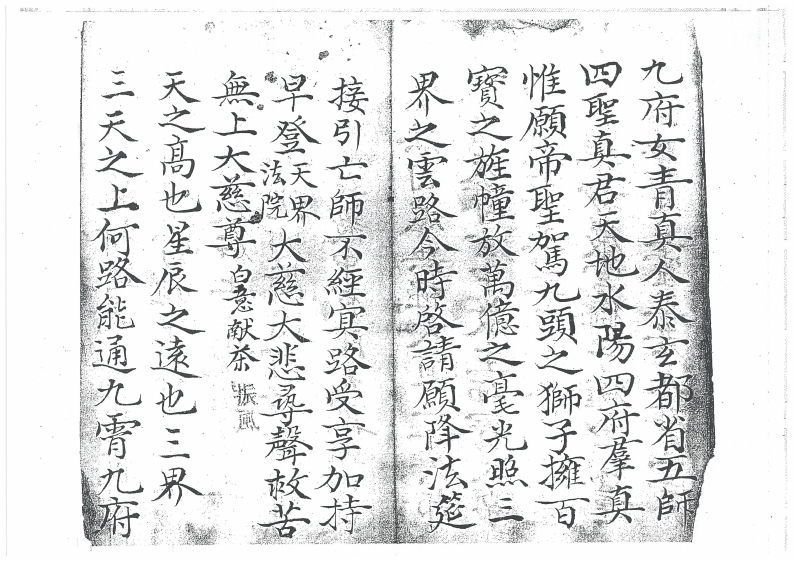 九府女青真人泰玄都省五師
四聖真君天地水陽四府羣真
惟願帝聖駕九頭之獅子擁百
寶之旌幢放萬億之毫光照三
界之雲路今時啓請願降法筵
接引亡師不經冥路受享加持
早登天界法院大慈大悲尋聲救苦
無上大慈尊 白意献茶 振風
天之髙也星辰之遠也三界
三天之上何路能通九霄九府